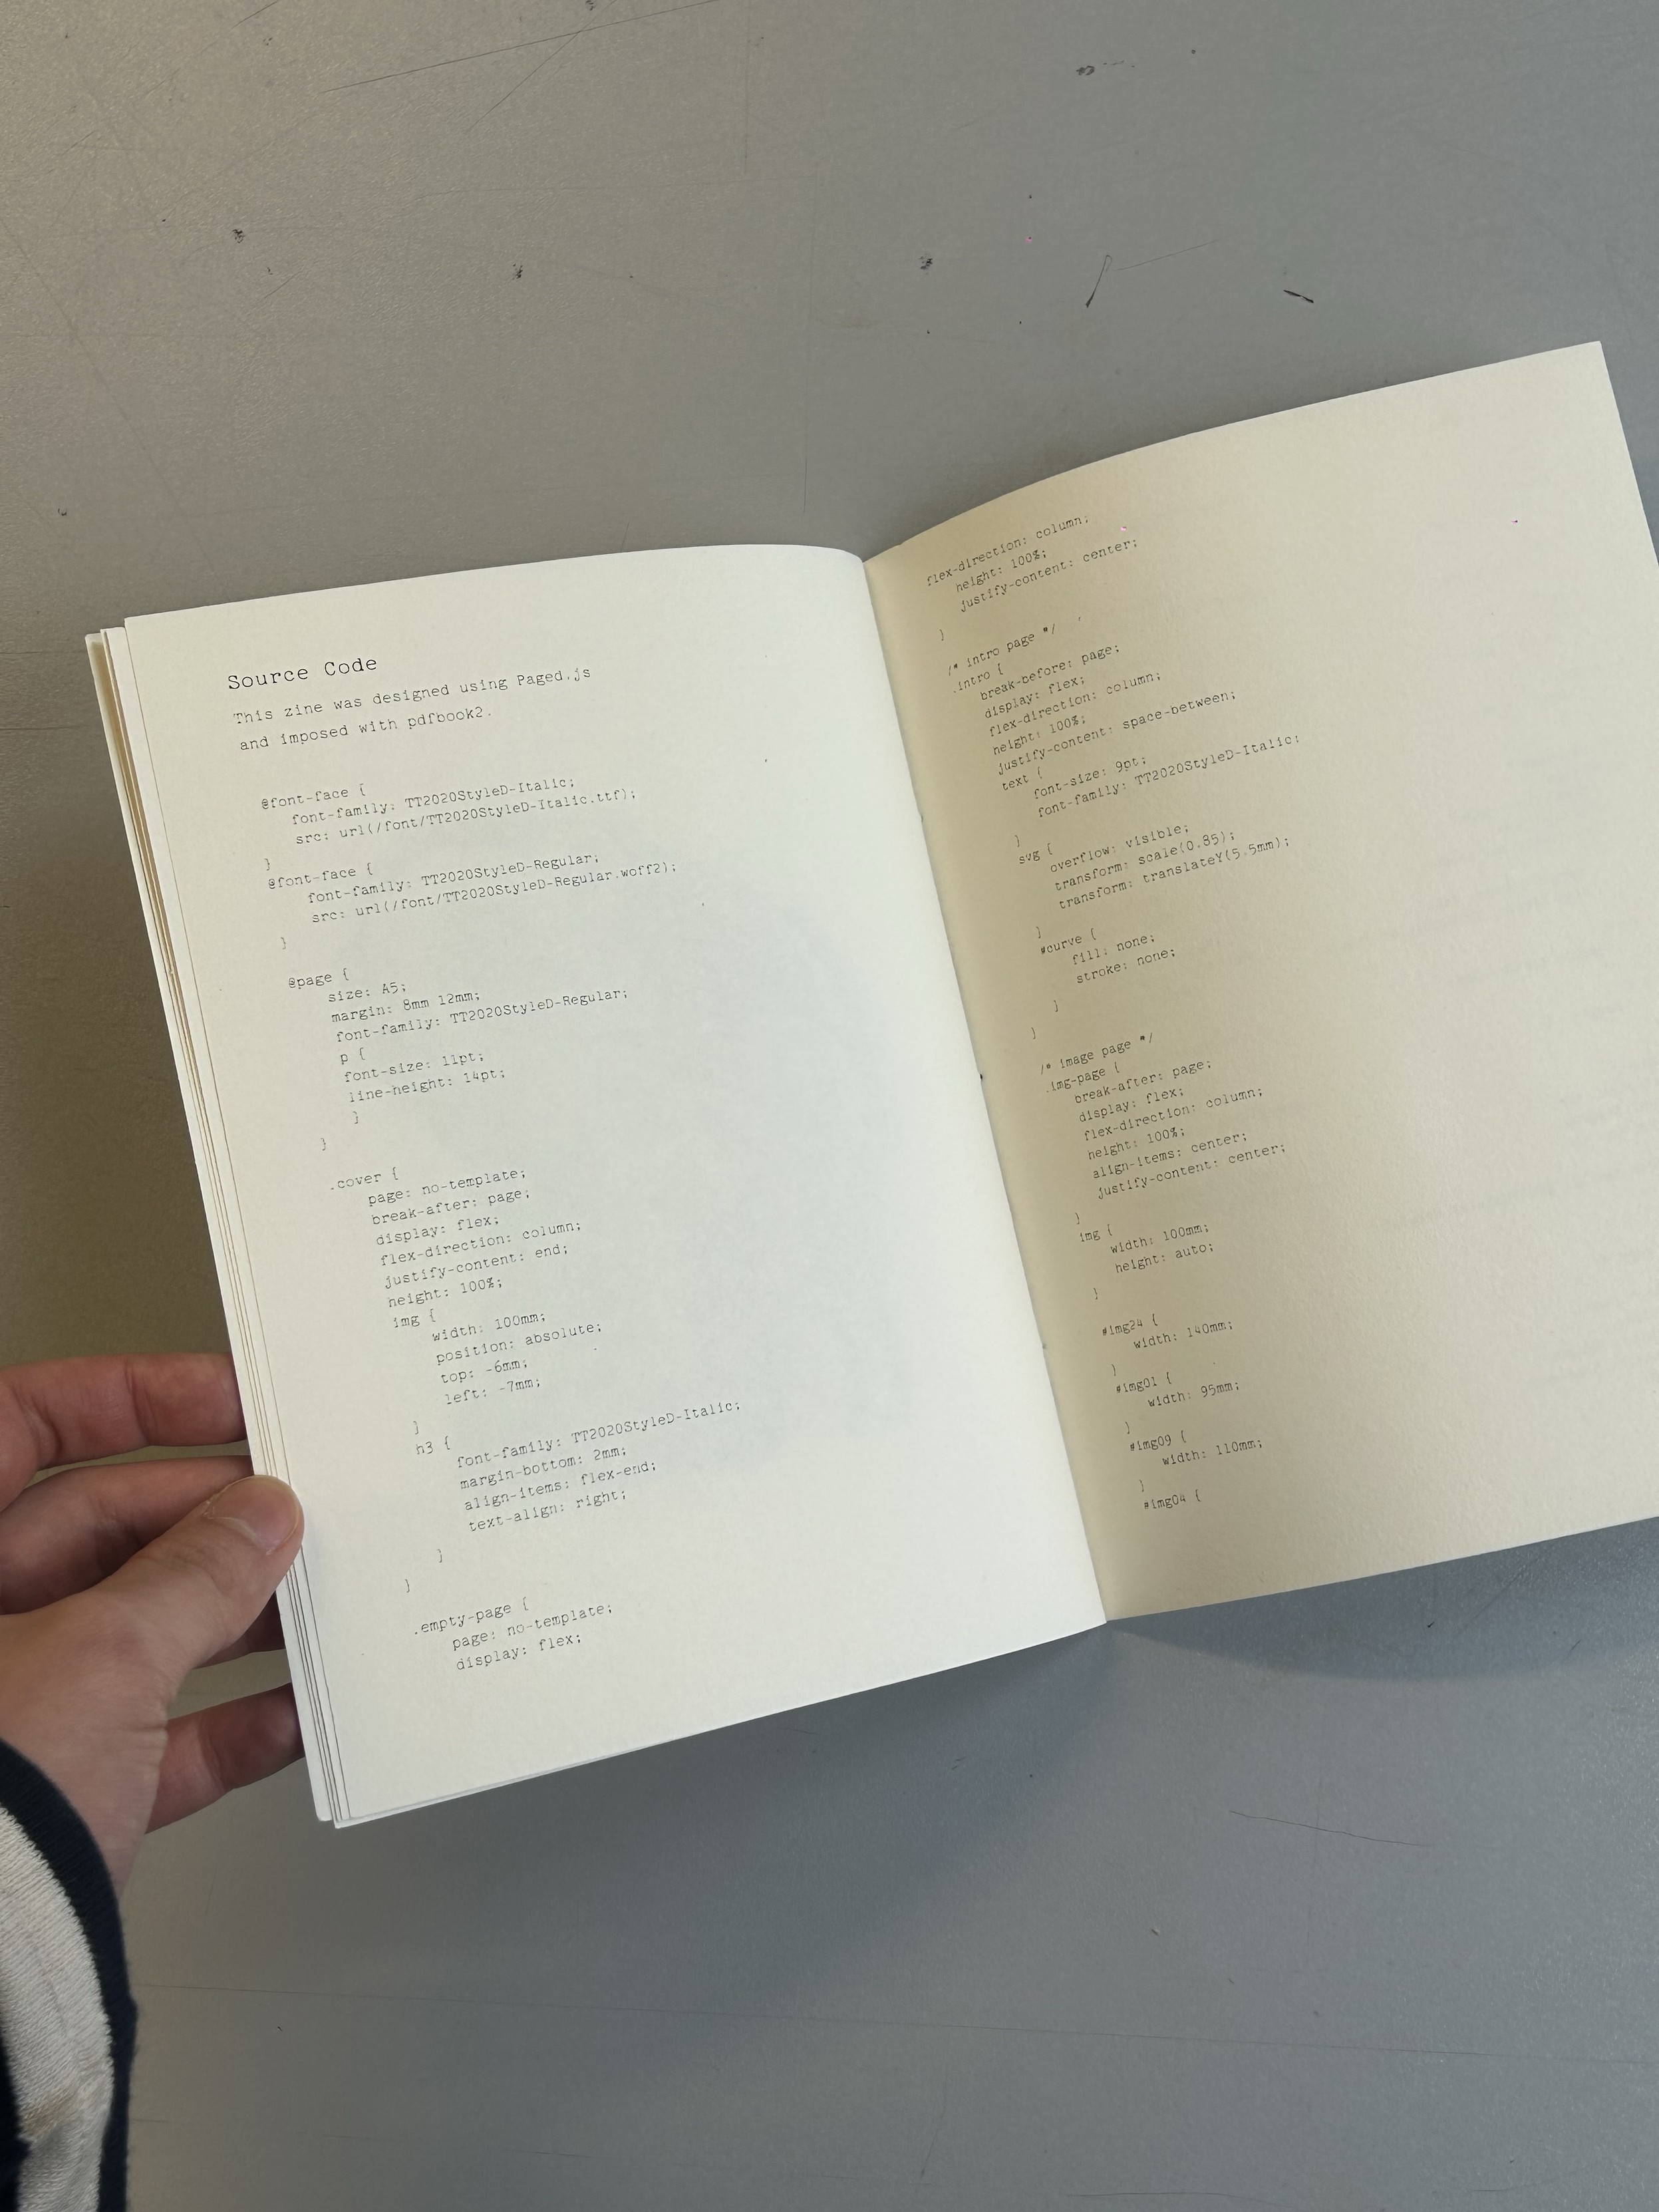 Source Code
This zine was designed using Paged.js
and imposed with pdfbook2.
@font-face {
font-family: TT2020StyleD-Italic;
src: url(/font/TT2020StyleD-Italic.ttf);
}
@font-face {
font-family: TT2020StyleD-Regular;
src: url(/font/TT2020StyleD-Regular.woff2);
}
@page {
size: A5;
margin: 8mm 12mm;
font-family: TT2020StyleD-Regular;
p {
font-size: 11pt;
line-height: 14pt;
}
}
.cover {
page: no-template;
break-after: page;
display: flex;
flex-direction: column;
justify-content: end;
height: 100%;
img {
width: 100mm;
position: absolute;
top: -6mm;
left: -7mm;
}
h3 {
font-family: TT2020StyleD-Italic;
margin-bottom: 2mm;
align-items: flex-end;
text-align: right;
}
}
.empty-page {
page: no-template;
display: flex;
flex-direction: column;
height: 100%;
justify-content: center;
}
/* intro page */
.intro {
break-before: page;
display: flex;
flex-direction: column;
height: 100%;
justify-content: space-between;
text {
font-size: 9pt;
font-family: TT2020StyleD-Italic;
}
svg {
overflow: visible;
transform: scale(0.85);
transform: translateY(5.5mm);
}
#curve {
fill: none;
stroke: none;
}
}
/* image page */
.img-page {
break-after: page;
display: flex;
flex-direction: column;
height: 100%;
align-items: center;
justify-content: center;
}
img {
width: 100mm;
height: auto;
}
#img24 {
width: 140mm;
}
#img01 {
width: 95mm;
}
#img09 {
width: 110mm;
}
#img04 {